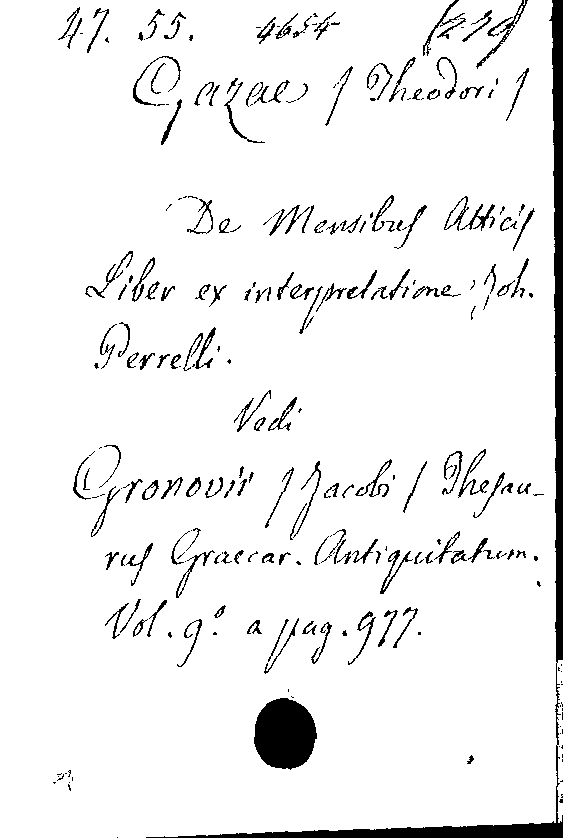 47. 55. 4654 (279)
Gazae / Theodori /
De Mensibus Atticis
Liber ex interpretatione Joh.
Perrelli.
Vedi
Gronovii / Jacobi / Thesau-
rus Graecar. Antiquitatum.
Vol. 9.º a pag. 977.